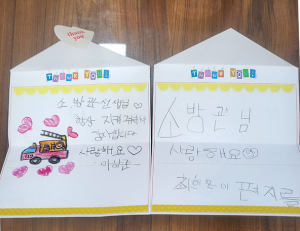 thank you
THANK YOU!
소방관선생님
항상 지켜주셔서
감사합니다
사랑해요
THANK YOU!
소방관님
사랑해요
편지를